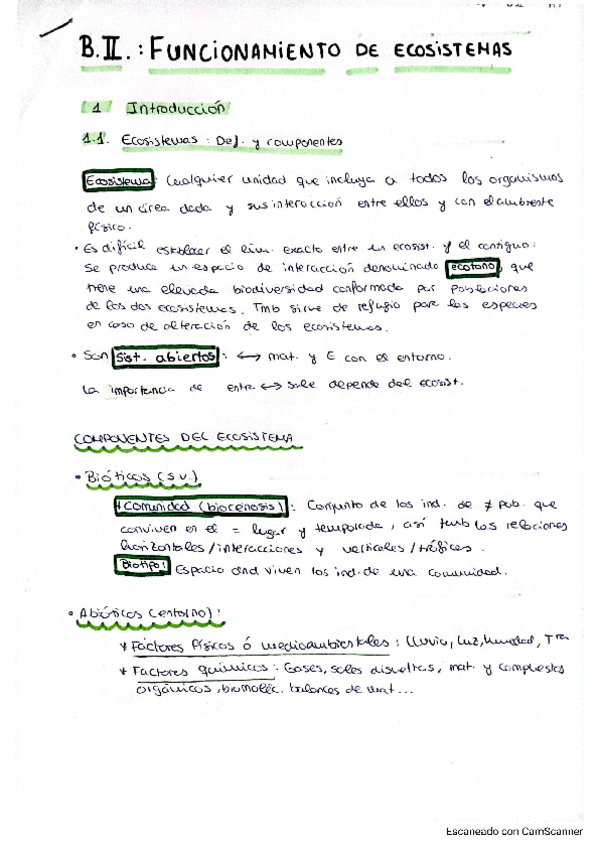 B.II.: FUNCIONAMIENTO DE ECOSISTEMAS
1 Introducción
1.1. Ecosistemas: Def. y componentes
Ecosistema: Cualquier unidad que incluya a todos los organismos
de un área dada y sus interacción entre ellos y con el ambiente
físico.
• Es difícil establecer el lím. exacto entre un ecosist. y el contiguo:
Se produce un espacio de interacción denominado ecotono, que
tiene una elevada biodiversidad conformada por poblaciones
de los dos ecosistemas. Tmb sirve de refugio para las especies
en caso de alteración de los ecosistemas.
• Son sist. abiertos: ↔ mat. y E con el entorno.
La importancia de entra ↔ sale depende del ecosist.
COMPONENTES DEL ECOSISTEMA
• Bióticos (s.v.)
* Comunidad (biocenosis): Conjunto de los ind. de ≠ pob. que
conviven en el = lugar y temporada, así tmb las relaciones
horizontales/interacciones y verticales/tróficas.
Biotipo: Espacio dnd viven los ind. de una comunidad.
• Abióticos (entorno):
* Factores físicos ó medioambientales: Lluvia, Luz, humedad, Tra
* Factores químicos: Gases, sales disueltas, mat. y compuestos
orgánicos, biomoléc. balances de mat...
Escaneado con CamScanner